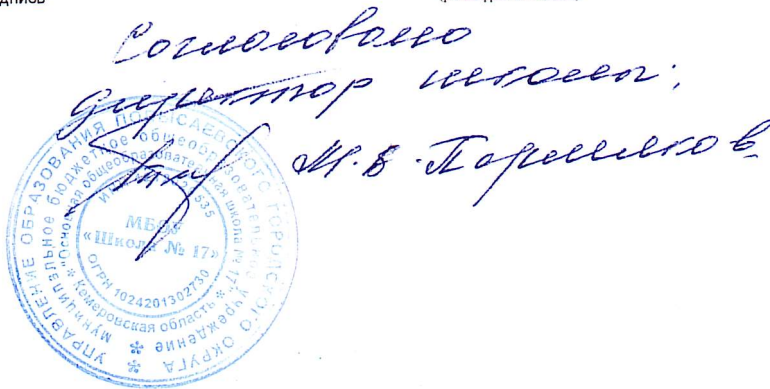 Согласовано
директор школы:
М.В. Паршиков
УПРАВЛЕНИЕ ОБРАЗОВАНИЯ ПОЛЫСАЕВСКОГО ГОРОДСКОГО ОКРУГА
муниципальное бюджетное общеобразовательное учреждение
"Основная общеобразовательная школа № 17"
* Кемеровская область *
ОГРН 1024201302730
«Школа № 17»